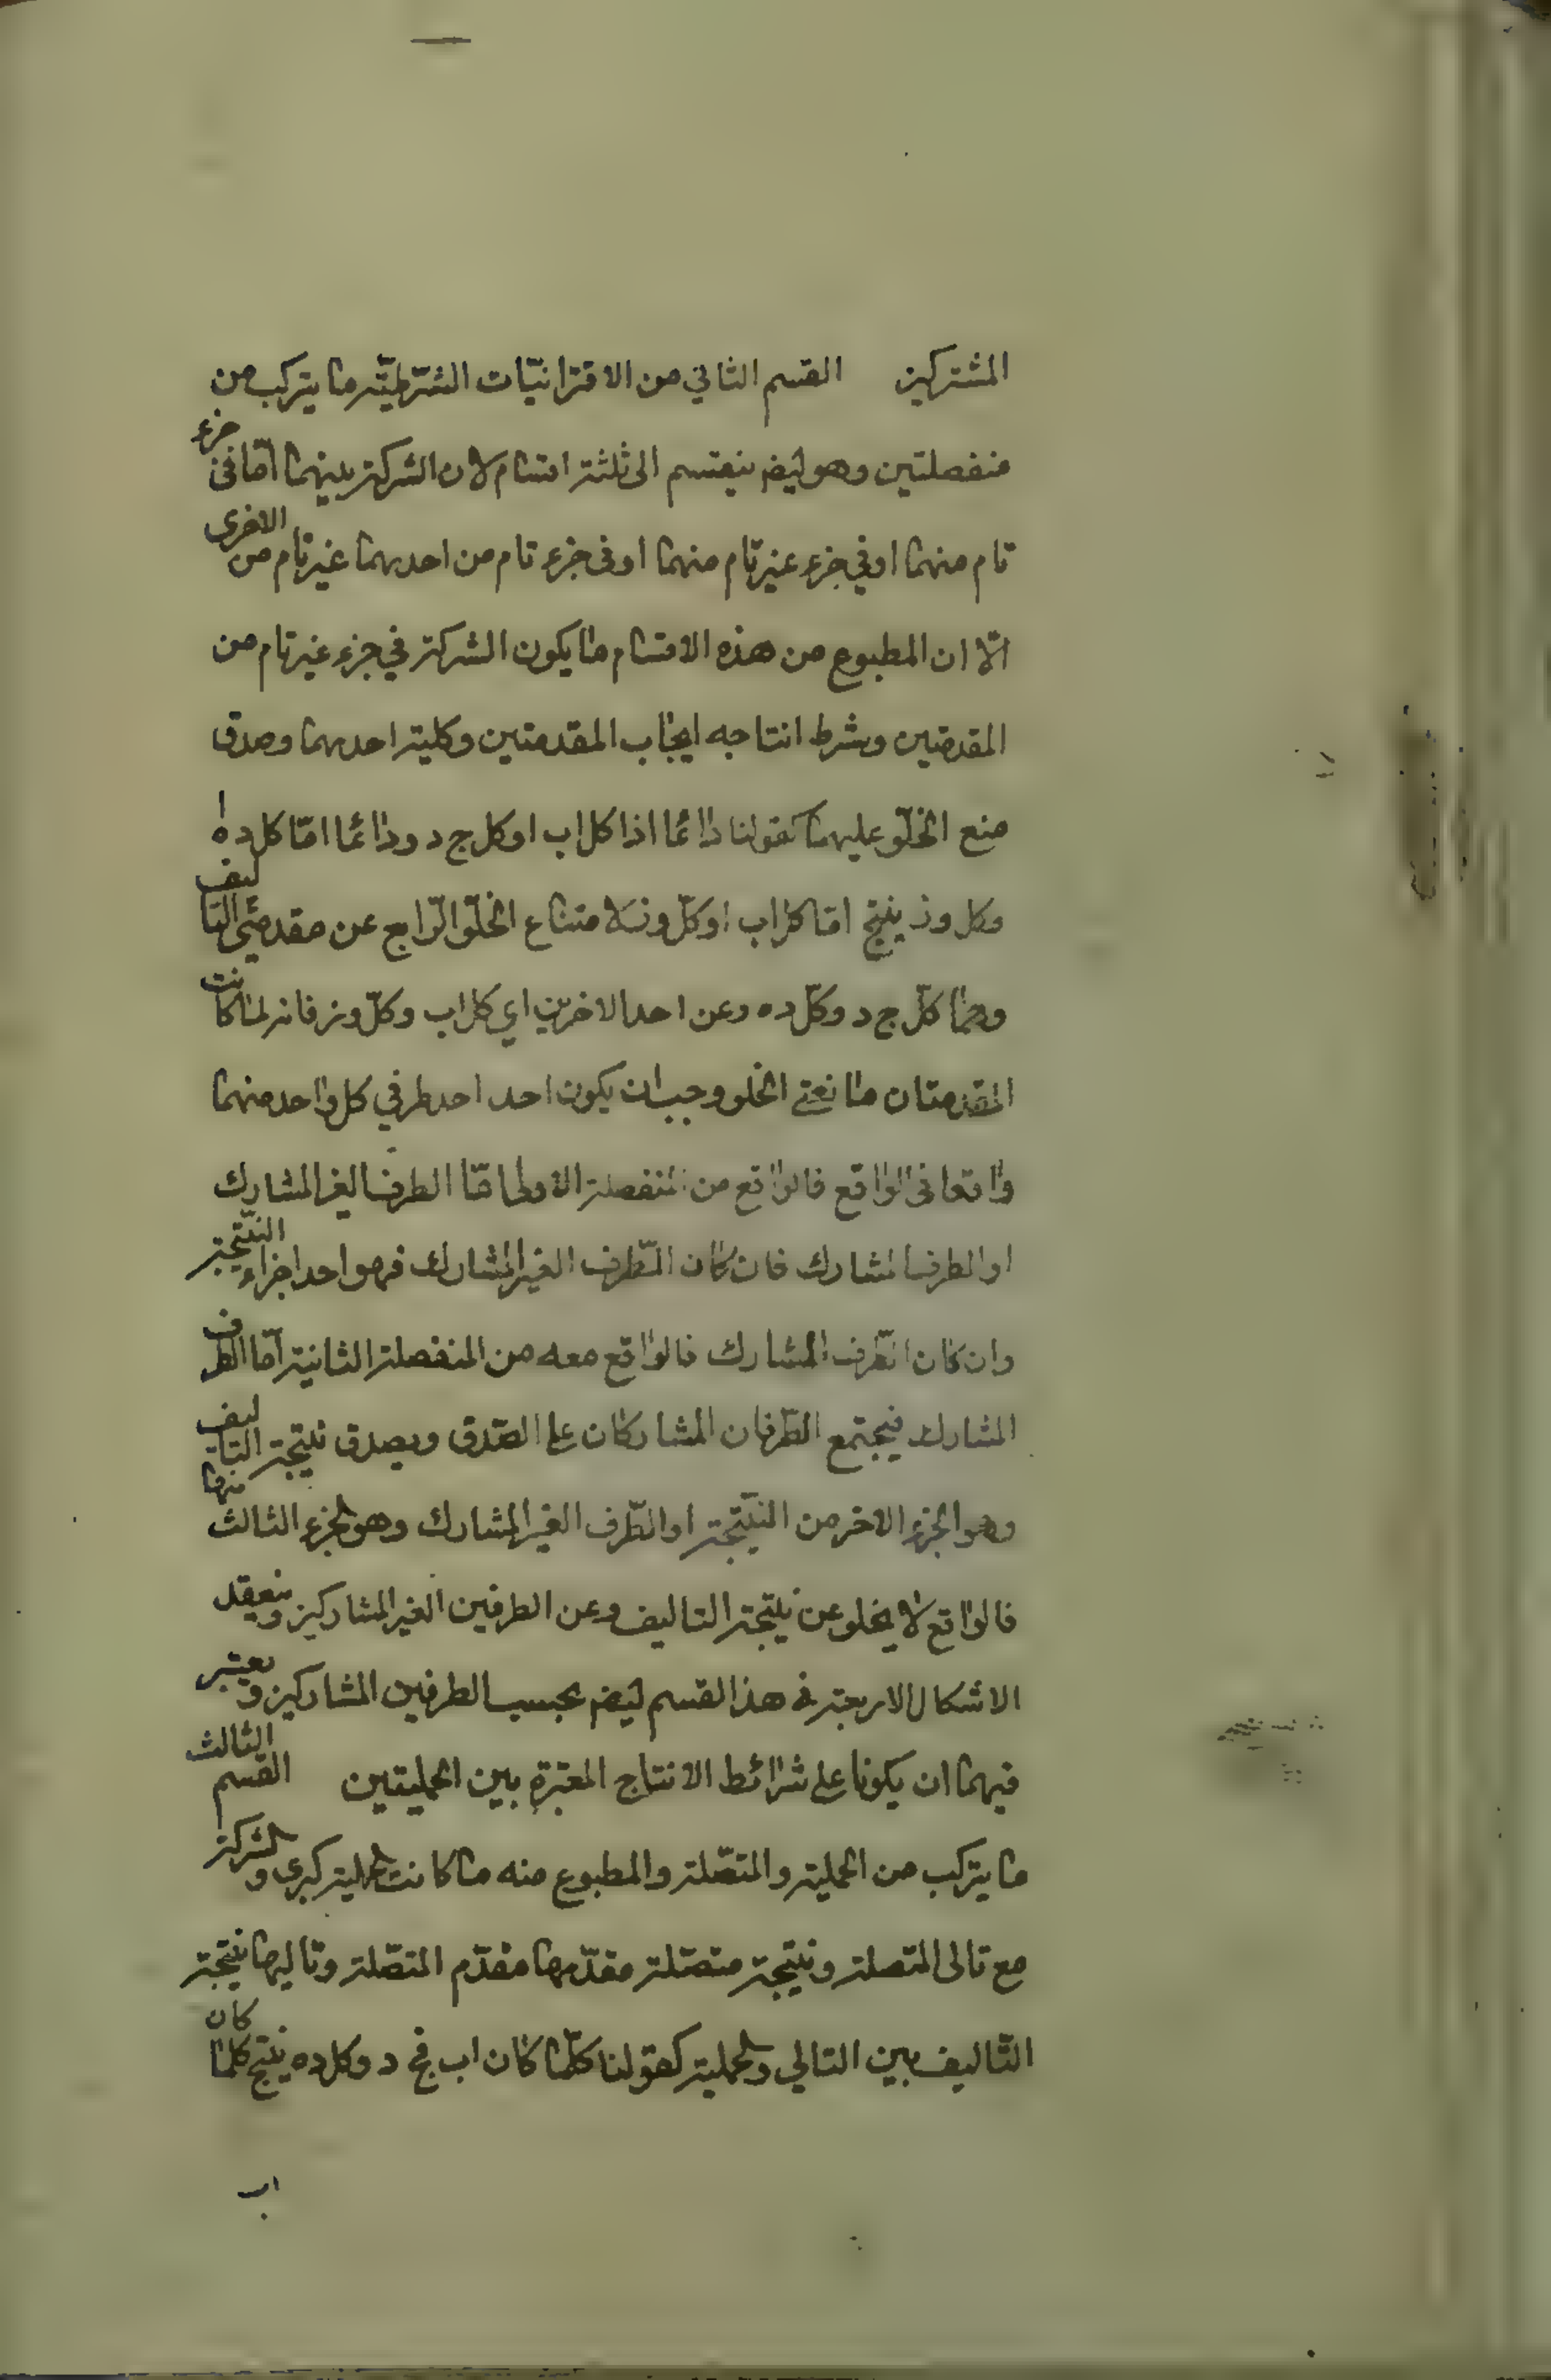 المشتركين القسم الثاني من الاقترانيّات الشرطيّة ما يتركب من
منفصلتين وهو ايضا ينقسم الى ثلثة اقسام لان الشركة بينهما امّا في جزء
تام منهما او في جزء غير تام منهما او في جزء تام من احدهما غير تام من الاخرى
الّا ان المطبوع من هذه الاقسام ما يكون الشركة في جزء غير تام من
المقدمتين وشرط انتاجه ايجاب المقدمتين وكلية احدهما وصدق
منع الخلّو عليهما كقولنا دائما اذا كل اب او كل ج د ودائما امّا كل د ه ا
وكل و ز ينتج امّا كل اب او كلّ و ز لامتناع الخلّو الرّابع عن مقدمتي التاليف
وهما كلّ ج د وكلّ د ه وعن احد الاخرين اي كل اب وكلّ و ز فانه لما كانت
المقدمتان مانعتي الخلو وجب ان يكون احد احد طرفي كل واحد منهما
واقعا في الواقع فالواقع من المنفصلة الاولى امّا الطرف الغير المشارك
او الطرف المشارك فان كان الطّرف الغير المشارك فهو احد اجزاء النتّيجة
وان كان الطّرف المشارك فالواقع معه من المنفصلة الثانية امّا الطرف
المشارك فيجتمع الطّرفان المشاركان على الصّدق ويصدق نتيجة التاليف
وهو الجزء الاخر من النتّيجة او الطّرف الغير المشارك وهو الجزء الثالث منها
فالواقع لا يخلو عن نتيجة التاليف وعن الطرفين الغير المشاركين وينعقد
الاشكال الاربعة في هذا القسم ايضا بحسب الطرفين المشاركين ويعتبر
فيهما ان يكونا على شرائط الانتاج المعتبرة بين الحمليتين القسم الثالث
ما يتركب من الحملية والمتصّلة والمطبوع منه ما كانت الحملية كبرى والشركة
مع تالى المتصلة ونتيجة متصّلة مقدّمها مقدّم المتصّلة وتاليها نتيجة
التّاليف بين التالي والحملية كقولنا كلّما كان اب فج د وكل د ه ينتج كلما كان
اب